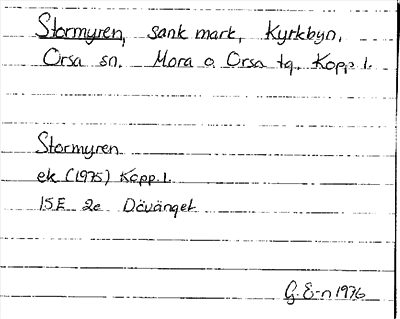 Stormyren, sank mark, Kyrkbyn,
Orsa sn. Mora o. Orsa tg. Kopp. l.
Stormyren
ek (1975) Kopp. l.
15E 2e Dövänget
G. E-n 1976